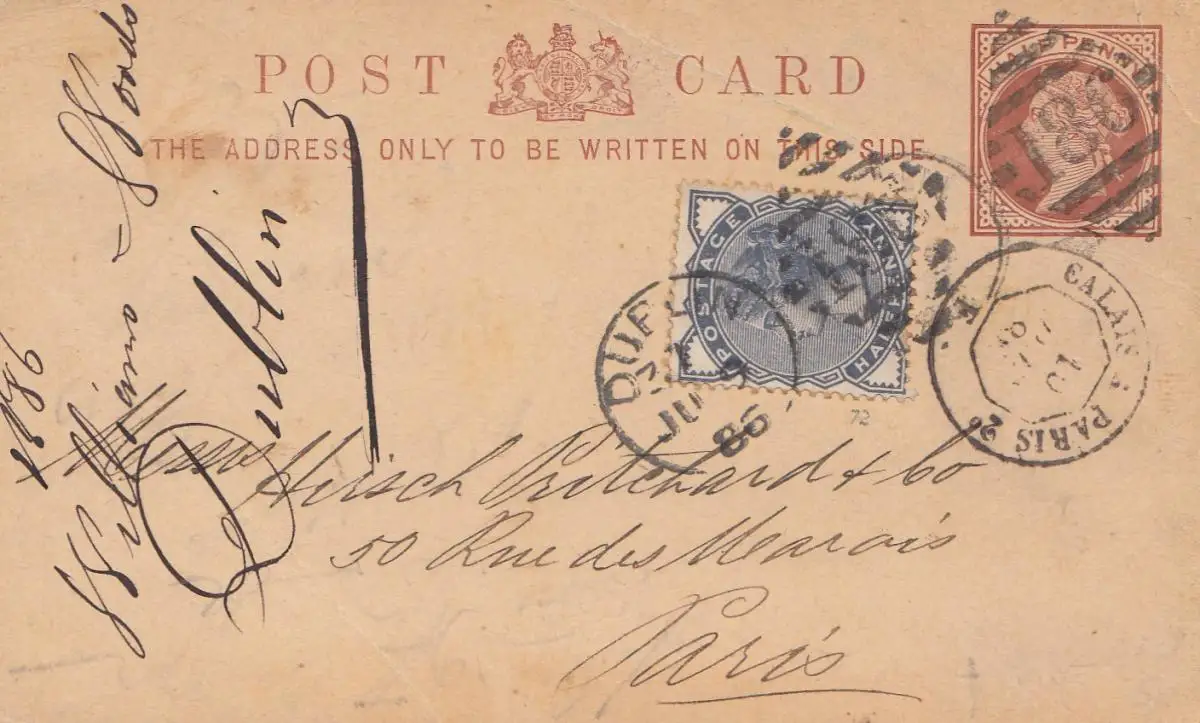 POST CARD
THE ADDRESS ONLY TO BE WRITTEN ON THIS SIDE.
HALF PENNY
186
POSTAGE
HALFPENNY
DUBLIN
JU
86
CALAIS A PARIS 2º
72
Messrs Hirsch Pritchard & Co
50 Rue des Marais
Paris
1886
Williams & Woods
Dublin